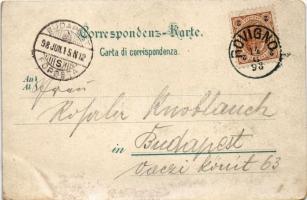 Correspondenz-Karte.
Carta di corrispondenza.
BUDAPEST
98 JUN.15.N12
ROVIGNO
98
An
Frau
Knoblauch
in Budapest
Váczi körút 63